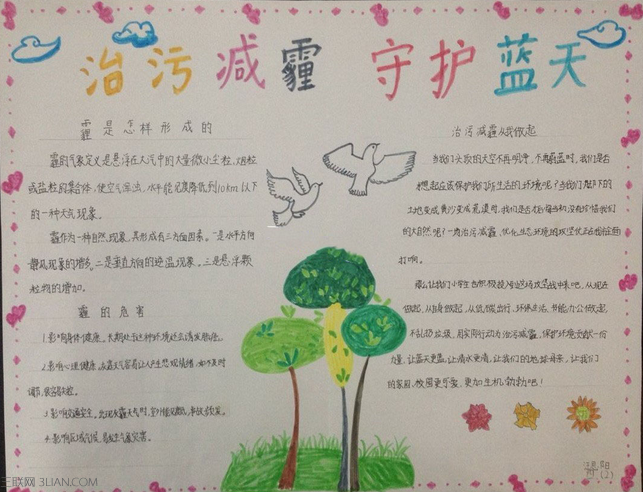 治污减霾 守护蓝天
霾是怎样形成的
霾的气象定义是悬浮在大气中的大量微小尘粒、烟粒
或盐粒的集合体,使空气浑浊,水平能见度降低到10km以下
的一种天气现象。
霾作为一种自然现象,其形成有三方面因素。一是水平方向
静风现象的增多。二是垂直方向的逆温现象。三是悬浮颗
粒物的增加。
霾的危害
1.影响身体健康。长期处于这种环境还会诱发肺癌。
2.影响心理健康。
3.影响交通安全。出现霾天气时,
4.影响区域气候,
治污减霾从我做起
当我们头顶的天空不再明净、不再蔚蓝时,我们是否
想起应该保护我们所生活的环境呢?当我们脚下的
土地变成黄沙变成荒漠时,我们是否
的大自然呢?一场治污减霾、优化生态环境的攻坚仗正在
打响。
那么让我们小学生也积极投入到这场攻坚战中来吧,从现在
做起,从自身做起,从低碳出行、环保生活、节能办公做起,
不乱扔垃圾,用实际行动为治污减霾、保护环境贡献一份
力量,让蓝天更蓝,让清水更清,让我们的地球母亲,让我们
的家园、校园更可爱,更加生机勃勃吧!
三联网 3LIAN.COM